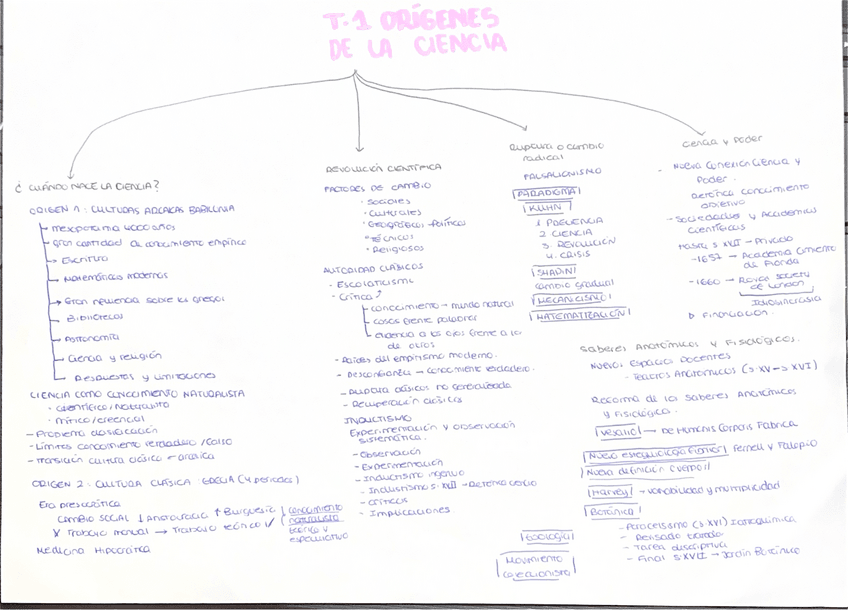 T.1 ORÍGENES
DE LA CIENCIA
¿ CUÁNDO NACE LA CIENCIA?
ORIGEN 1: CULTURAS ARCAICAS BABILONIA
Mesopotamia 4000 años
gran cantidad de conocimiento empírico
Escritura
Matemáticas modernas
Gran influencia sobre los griegos
Bibliotecas
Astronomía
Ciencia y religión
Respuestas y limitaciones
CIENCIA COMO CONOCIMIENTO NATURALISTA
- Científico/Naturalista
- Mítico/creencial
- Problema clasificación
- Límites conocimiento verdadero/falso
- Transición cultura clásica - arcaica
ORIGEN 2: CULTURA CLÁSICA: GRECIA (4 periodos)
Era presocrática
CAMBIO SOCIAL ↓ Aristocracia ↑ Burguesía
X Trabajo manual → Trabajo teórico ✓
conocimiento
naturalista
teórico y
especulativo
Medicina Hipocrática
REVOLUCIÓN CIENTÍFICA
FACTORES DE CAMBIO
• Sociales
• Culturales
• Geográficos - Políticos
• Técnicos
• Religiosos
AUTORIDAD CLÁSICOS
- Escolaticismo
- Crítica
conocimiento → mundo natural
cosas frente palabras
evidencia a los ojos frente a la
de otros
- Raíces del empirismo moderno.
- Desconfianza → conocimiento verdadero.
- Ruptura clásicos no generalizada
- Recuperación clásicos
INDUCTISMO
Experimentación y observación
sistemática.
- Observación
- Experimentación
- Inductismo ingenuo
- Inductismo s. XVII -
- Críticas
- Implicaciones
Ruptura o cambio
radical
FALSACIONISMO
PARADIGMA
KUHN
1 PRECIENCIA
2 CIENCIA
3. REVOLUCIÓN
4. CRISIS
SHAPIN
cambio gradual
MECANICISMO
MATEMATIZACIÓN
Zoología
Movimiento
coleccionista
Ciencia y Poder
- Nueva conexión ciencia y
Poder.
Retórica conocimiento
objetivo
- Sociedades y Academias
científicas
Hasta s XVII - Privado
- 1657 → Academia Cimento
de Florida
- 1660 → Royal Society
of London
Idiosincrasia
Financiación.
Saberes Anatómicos y Fisiológicos.
Nuevos Espacios Docentes
- Teatros Anatómicos (s XV → XVI)
Reforma de los saberes Anatómicos
y Fisiológica.
Vesalio → De Humanis Corporis Fabrica
Fernell y Falopio
Nueva definición cuerpo
Harvey → variabilidad y multiplicidad
Botánica
- Paracelsismo (s XVI) Iatroquímica
- Revisado tratado
- Tarea descriptiva
- Final s XVII → Jardín Botánico